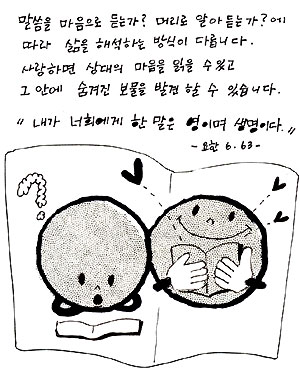 말씀을 마음으로 듣는가? 머리로 알아 듣는가?에
따라 삶을 해석하는 방식이 다릅니다.
사랑하면 상대의 마음을 읽을 수 있고
그 안에 숨겨진 보물을 발견 할 수 있습니다.
"내가 너희에게 한 말은 영이며 생명이다."
- 요한 6.63 -